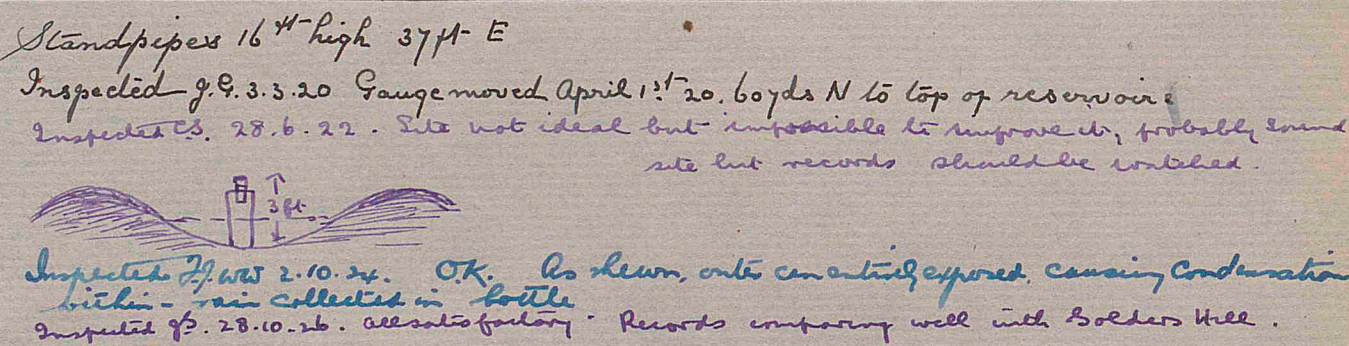 Standpipes 16 ft high 37 ft E
Inspected J.G. 3.3.20 Gauge moved April 1st 20. 60 yds N to top of reservoir.
Inspected 28.6.22. Site not ideal but impossible to improve it, probably sound
site but records should be watched.
3 ft.
Inspected WW 2.10.24. O.K. As shewn, outer can entirely exposed, causing Condensation
within - rain collected in bottle
Inspected 28.10.26. All satisfactory. Records comparing well with Golders Hill.